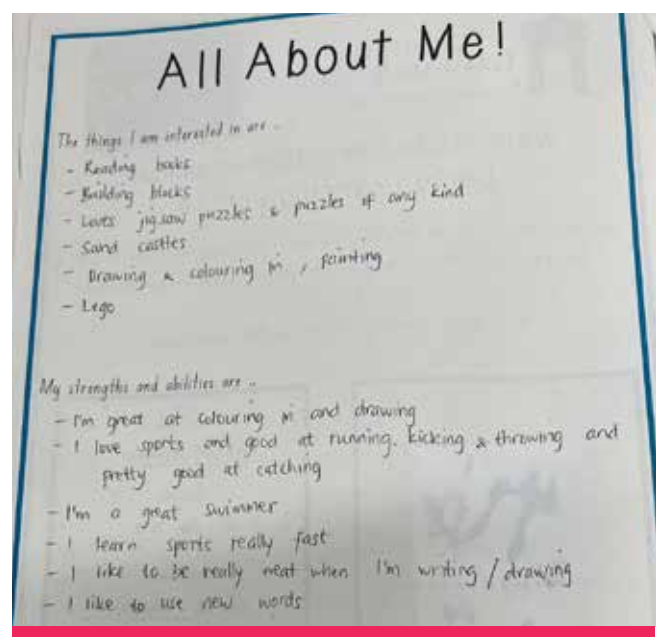 All About Me!
The things I am interested in are ..
- Reading books
- Building blocks
- Loves jigsaw puzzles & puzzles of any kind
- Sand castles
- Drawing & colouring in , painting
- Lego
My strengths and abilities are ..
- I'm great at colouring in and drawing
- I love sports and good at running, kicking & throwing and
pretty good at catching
- I'm a great swimmer
- I learn sports really fast
- I like to be really neat when I'm writing / drawing
- I like to use new words